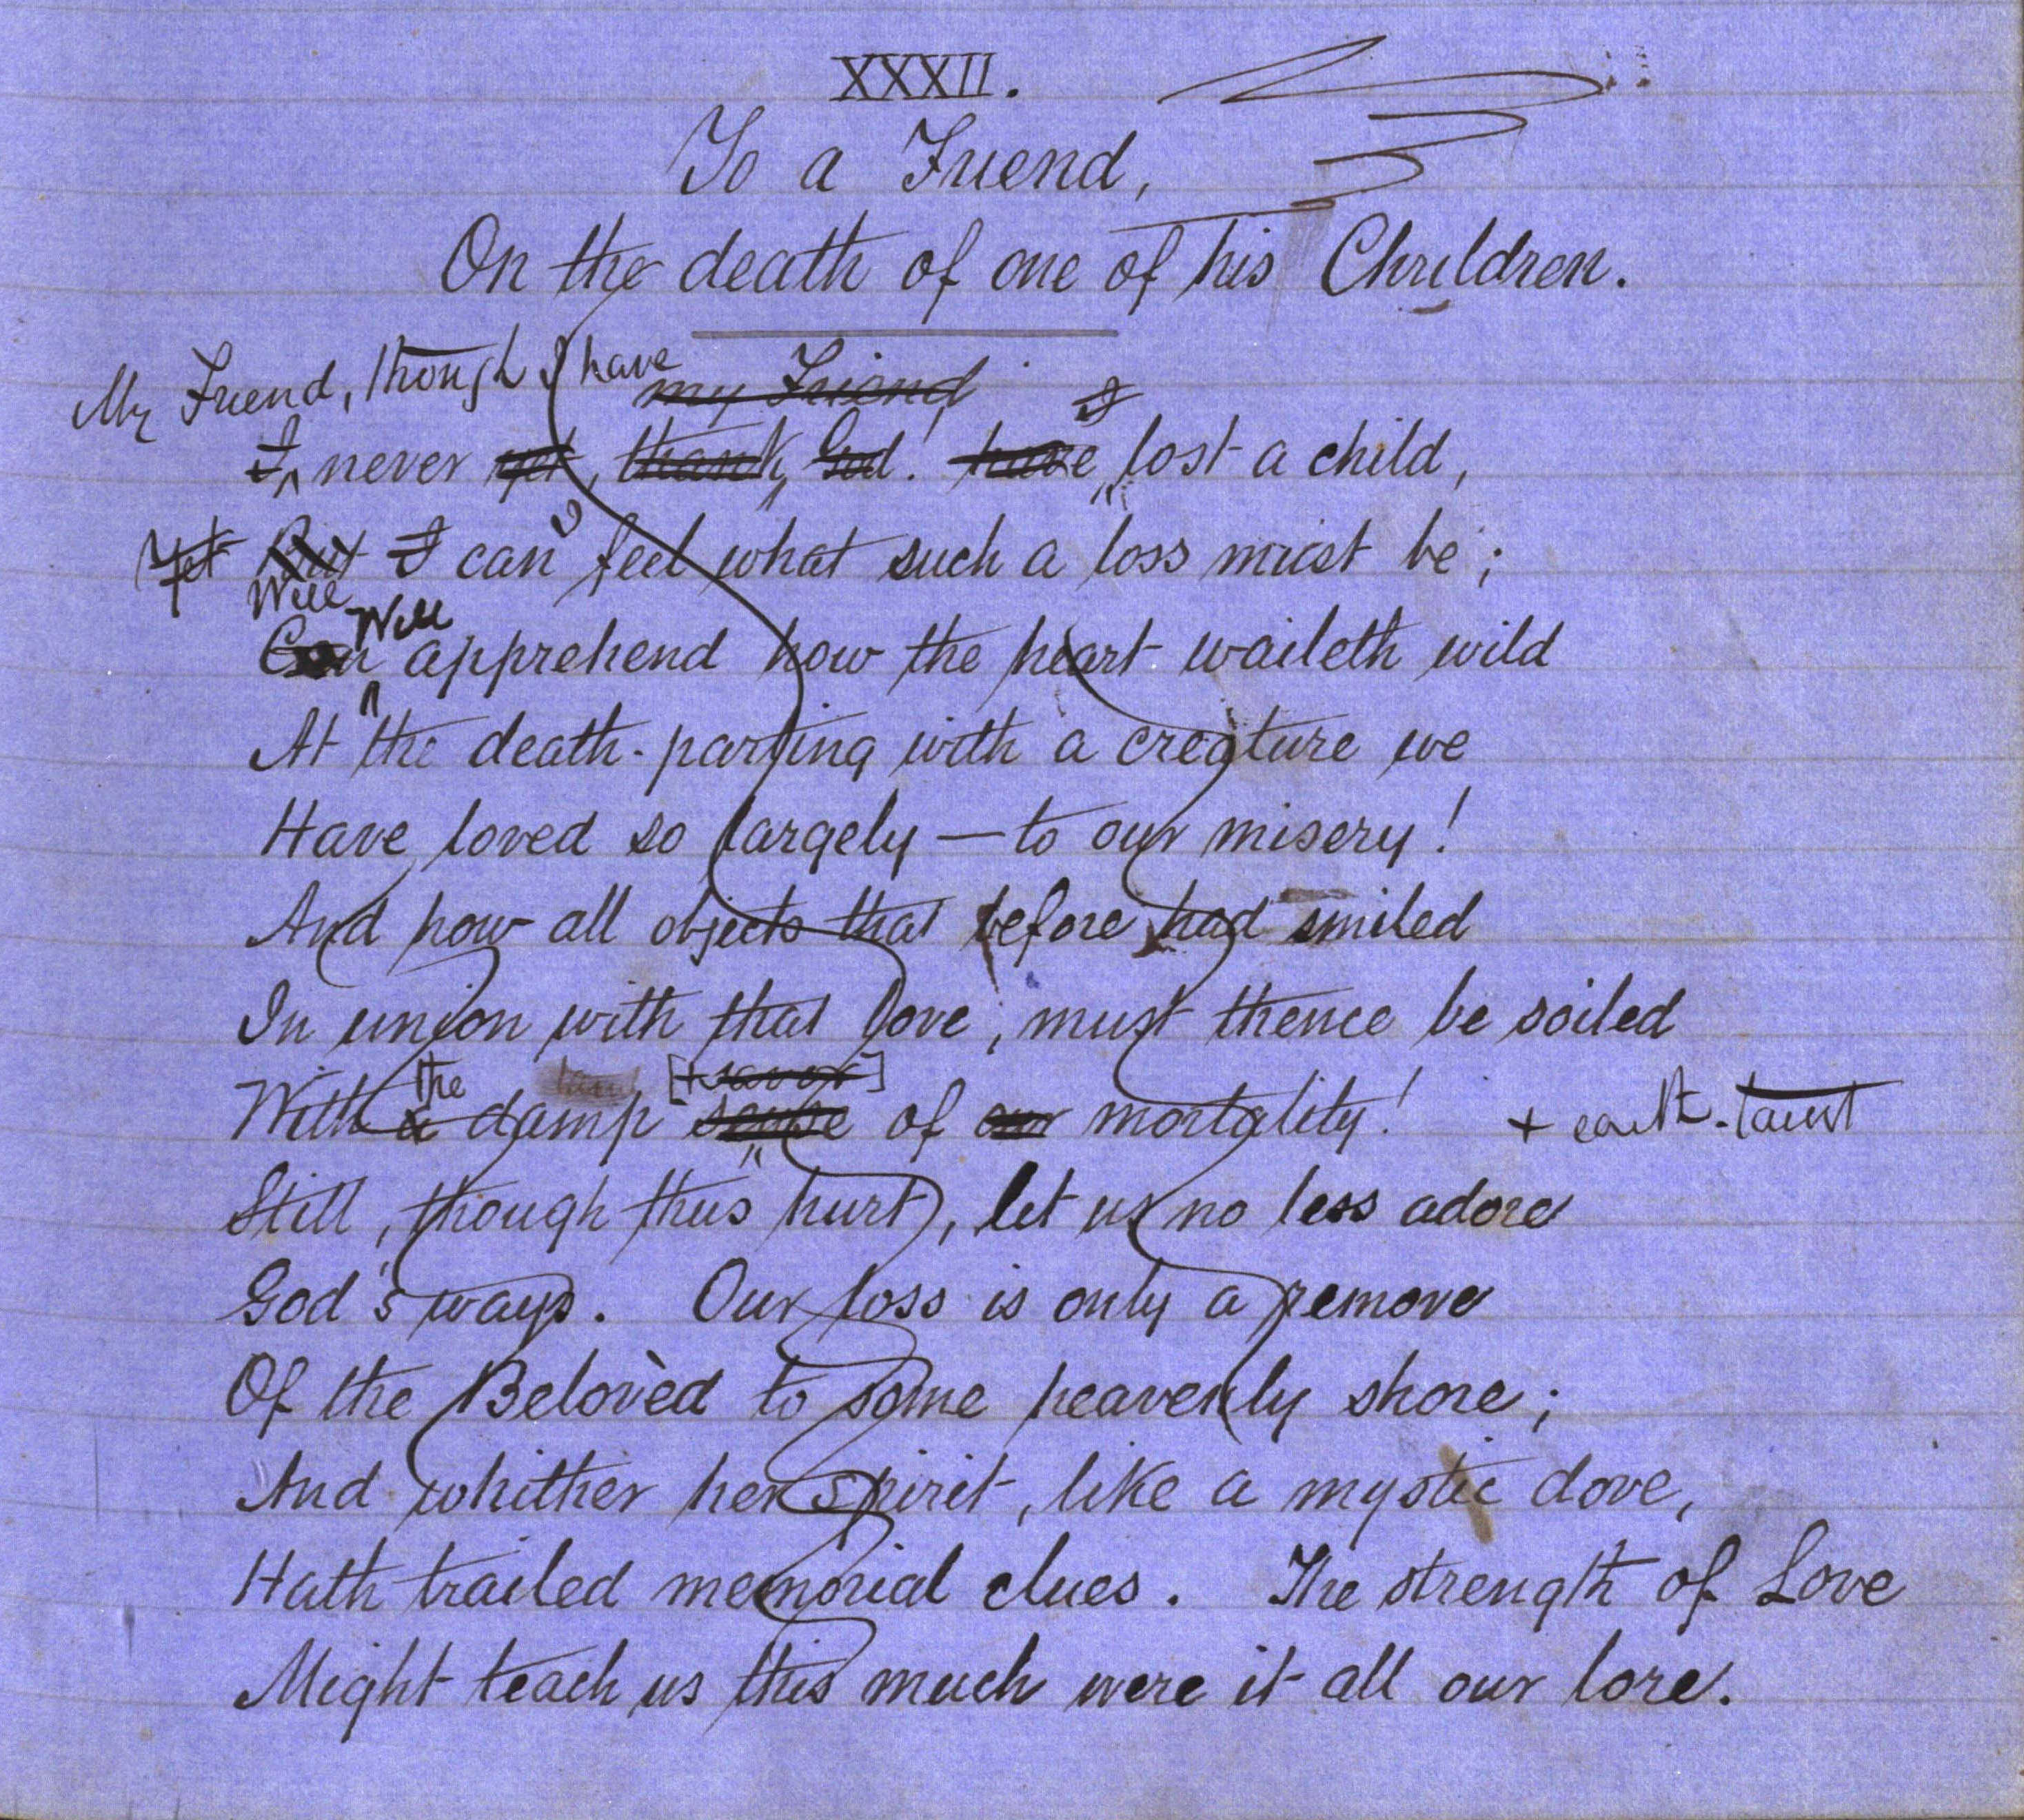 XXXII.
To a Friend,
On the death of one of his Children.
My Friend, though I have my Friend I
I never yet, thank God! have lost a child,
Yet But I can feel what such a loss must be;
Will Will
Can apprehend how the heart waileth wild
At the death-parting with a creature we
Have loved so largely — to our misery!
And how all objects that before had smiled
In union with that love, must thence be soiled
the taint [+ savor]
With a damp sense of our mortality! + earth-taint
Still, though thus hurt, let us no less adore
God's ways. Our loss is only a remove
Of the Belovèd to some heavenly shore;
And whither her spirit, like a mystic dove,
Hath trailed memorial clues. The strength of Love
Might teach us this much were it all our lore.